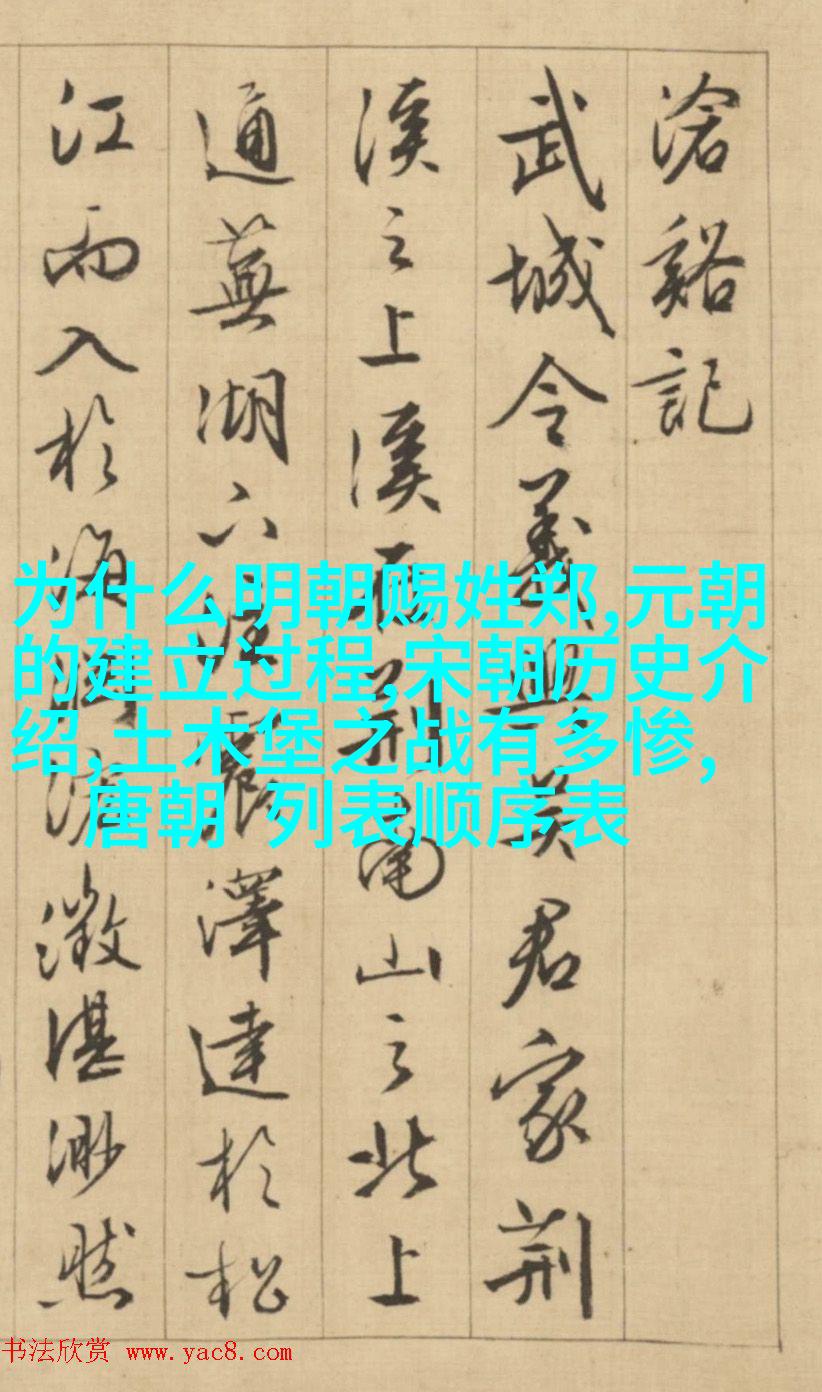 滄谿記
武城令義興吳君家荆
溪之上溪在荆南山之北上
通蕪湖下注震澤達於松
江而入於海澂湛渺然
为什么明朝赐姓郑,元朝
的建立过程,宋朝历史介
绍,土木堡之战有多惨,
唐朝 列表顺序表
书法欣赏 www.yac8.com